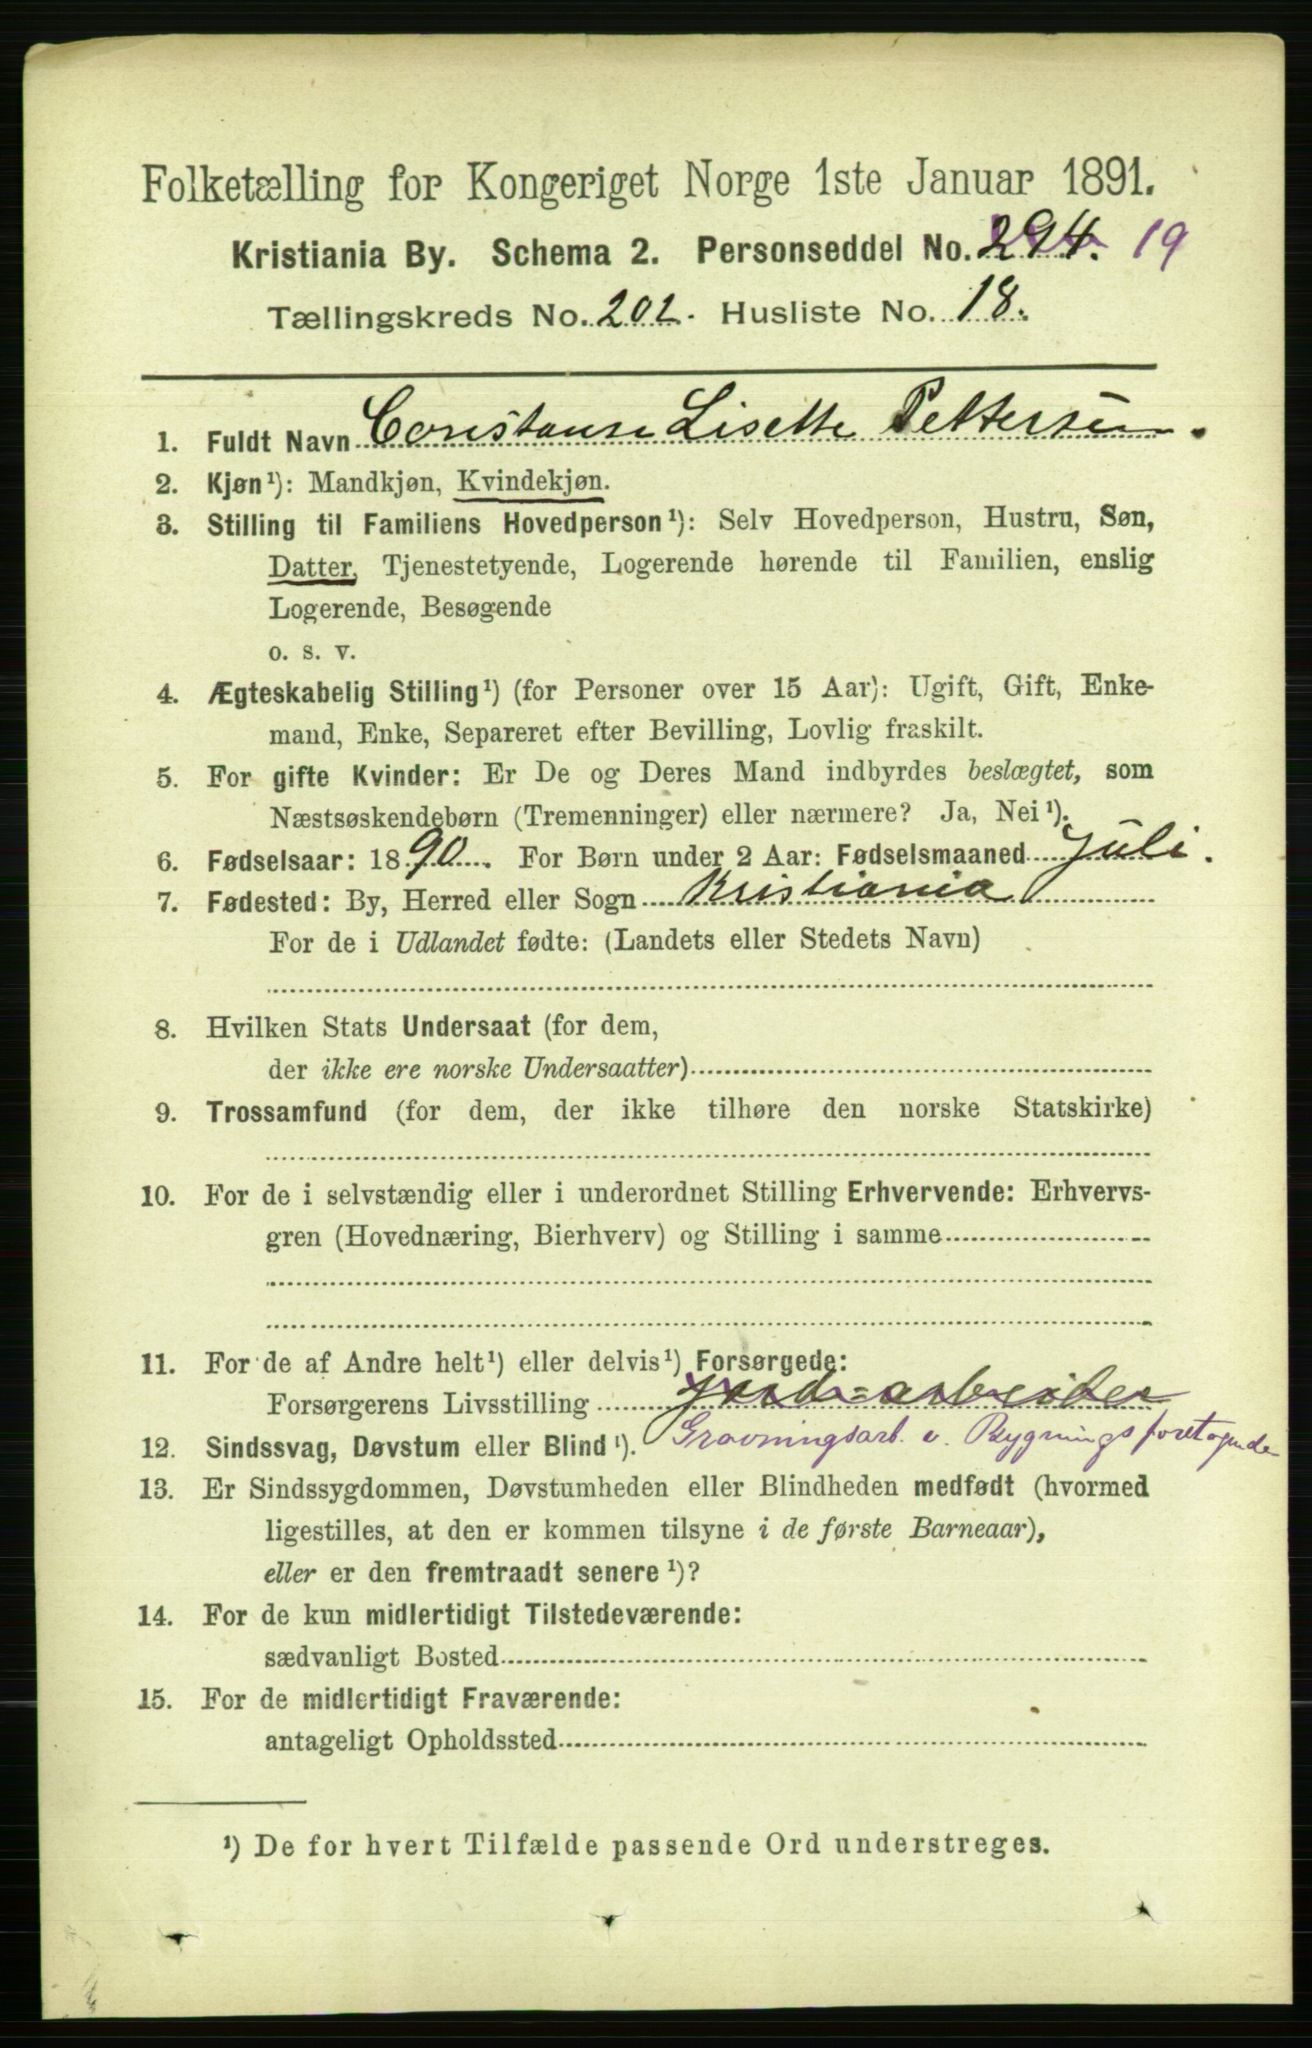 Folketælling for Kongeriget Norge 1ste Januar 1891.
Kristiania By. Schema 2. Personseddel No. 294. 19
Tællingskreds No. 202. Husliste No. 18.
1. Fuldt Navn Constanse Lisette Pettersen.
2. Kjøn¹): Mandkjøn, Kvindekjøn.
3. Stilling til Familiens Hovedperson¹): Selv Hovedperson, Hustru, Søn,
Datter, Tjenestetyende, Logerende hørende til Familien, enslig
Logerende, Besøgende
o. s. v.
4. Ægteskabelig Stilling¹) (for Personer over 15 Aar): Ugift, Gift, Enke-
mand, Enke, Separeret efter Bevilling, Lovlig fraskilt.
5. For gifte Kvinder: Er De og Deres Mand indbyrdes beslægtet, som
Næstsøskendebørn (Tremenninger) eller nærmere? Ja, Nei¹).
6. Fødselsaar: 1890. For Børn under 2 Aar: Fødselsmaaned Juli.
7. Fødested: By, Herred eller Sogn Kristiania
For de i Udlandet fødte: (Landets eller Stedets Navn)
8. Hvilken Stats Undersaat (for dem,
der ikke ere norske Undersaatter)
9. Trossamfund (for dem, der ikke tilhøre den norske Statskirke)
10. For de i selvstændig eller i underordnet Stilling Erhvervende: Erhvervs-
gren (Hovednæring, Bierhverv) og Stilling i samme
11. For de af Andre helt¹) eller delvis¹) Forsørgede:
Forsørgerens Livsstilling Jord=arbeider
Gravningsarb. v. Bygningsforetagende
12. Sindssvag, Døvstum eller Blind¹).
13. Er Sindssygdommen, Døvstumheden eller Blindheden medfødt (hvormed
ligestilles, at den er kommen tilsyne i de første Barneaar),
eller er den fremtraadt senere¹)?
14. For de kun midlertidigt Tilstedeværende:
sædvanligt Bosted
15. For de midlertidigt Fraværende:
antageligt Opholdssted
¹) De for hvert Tilfælde passende Ord understreges.